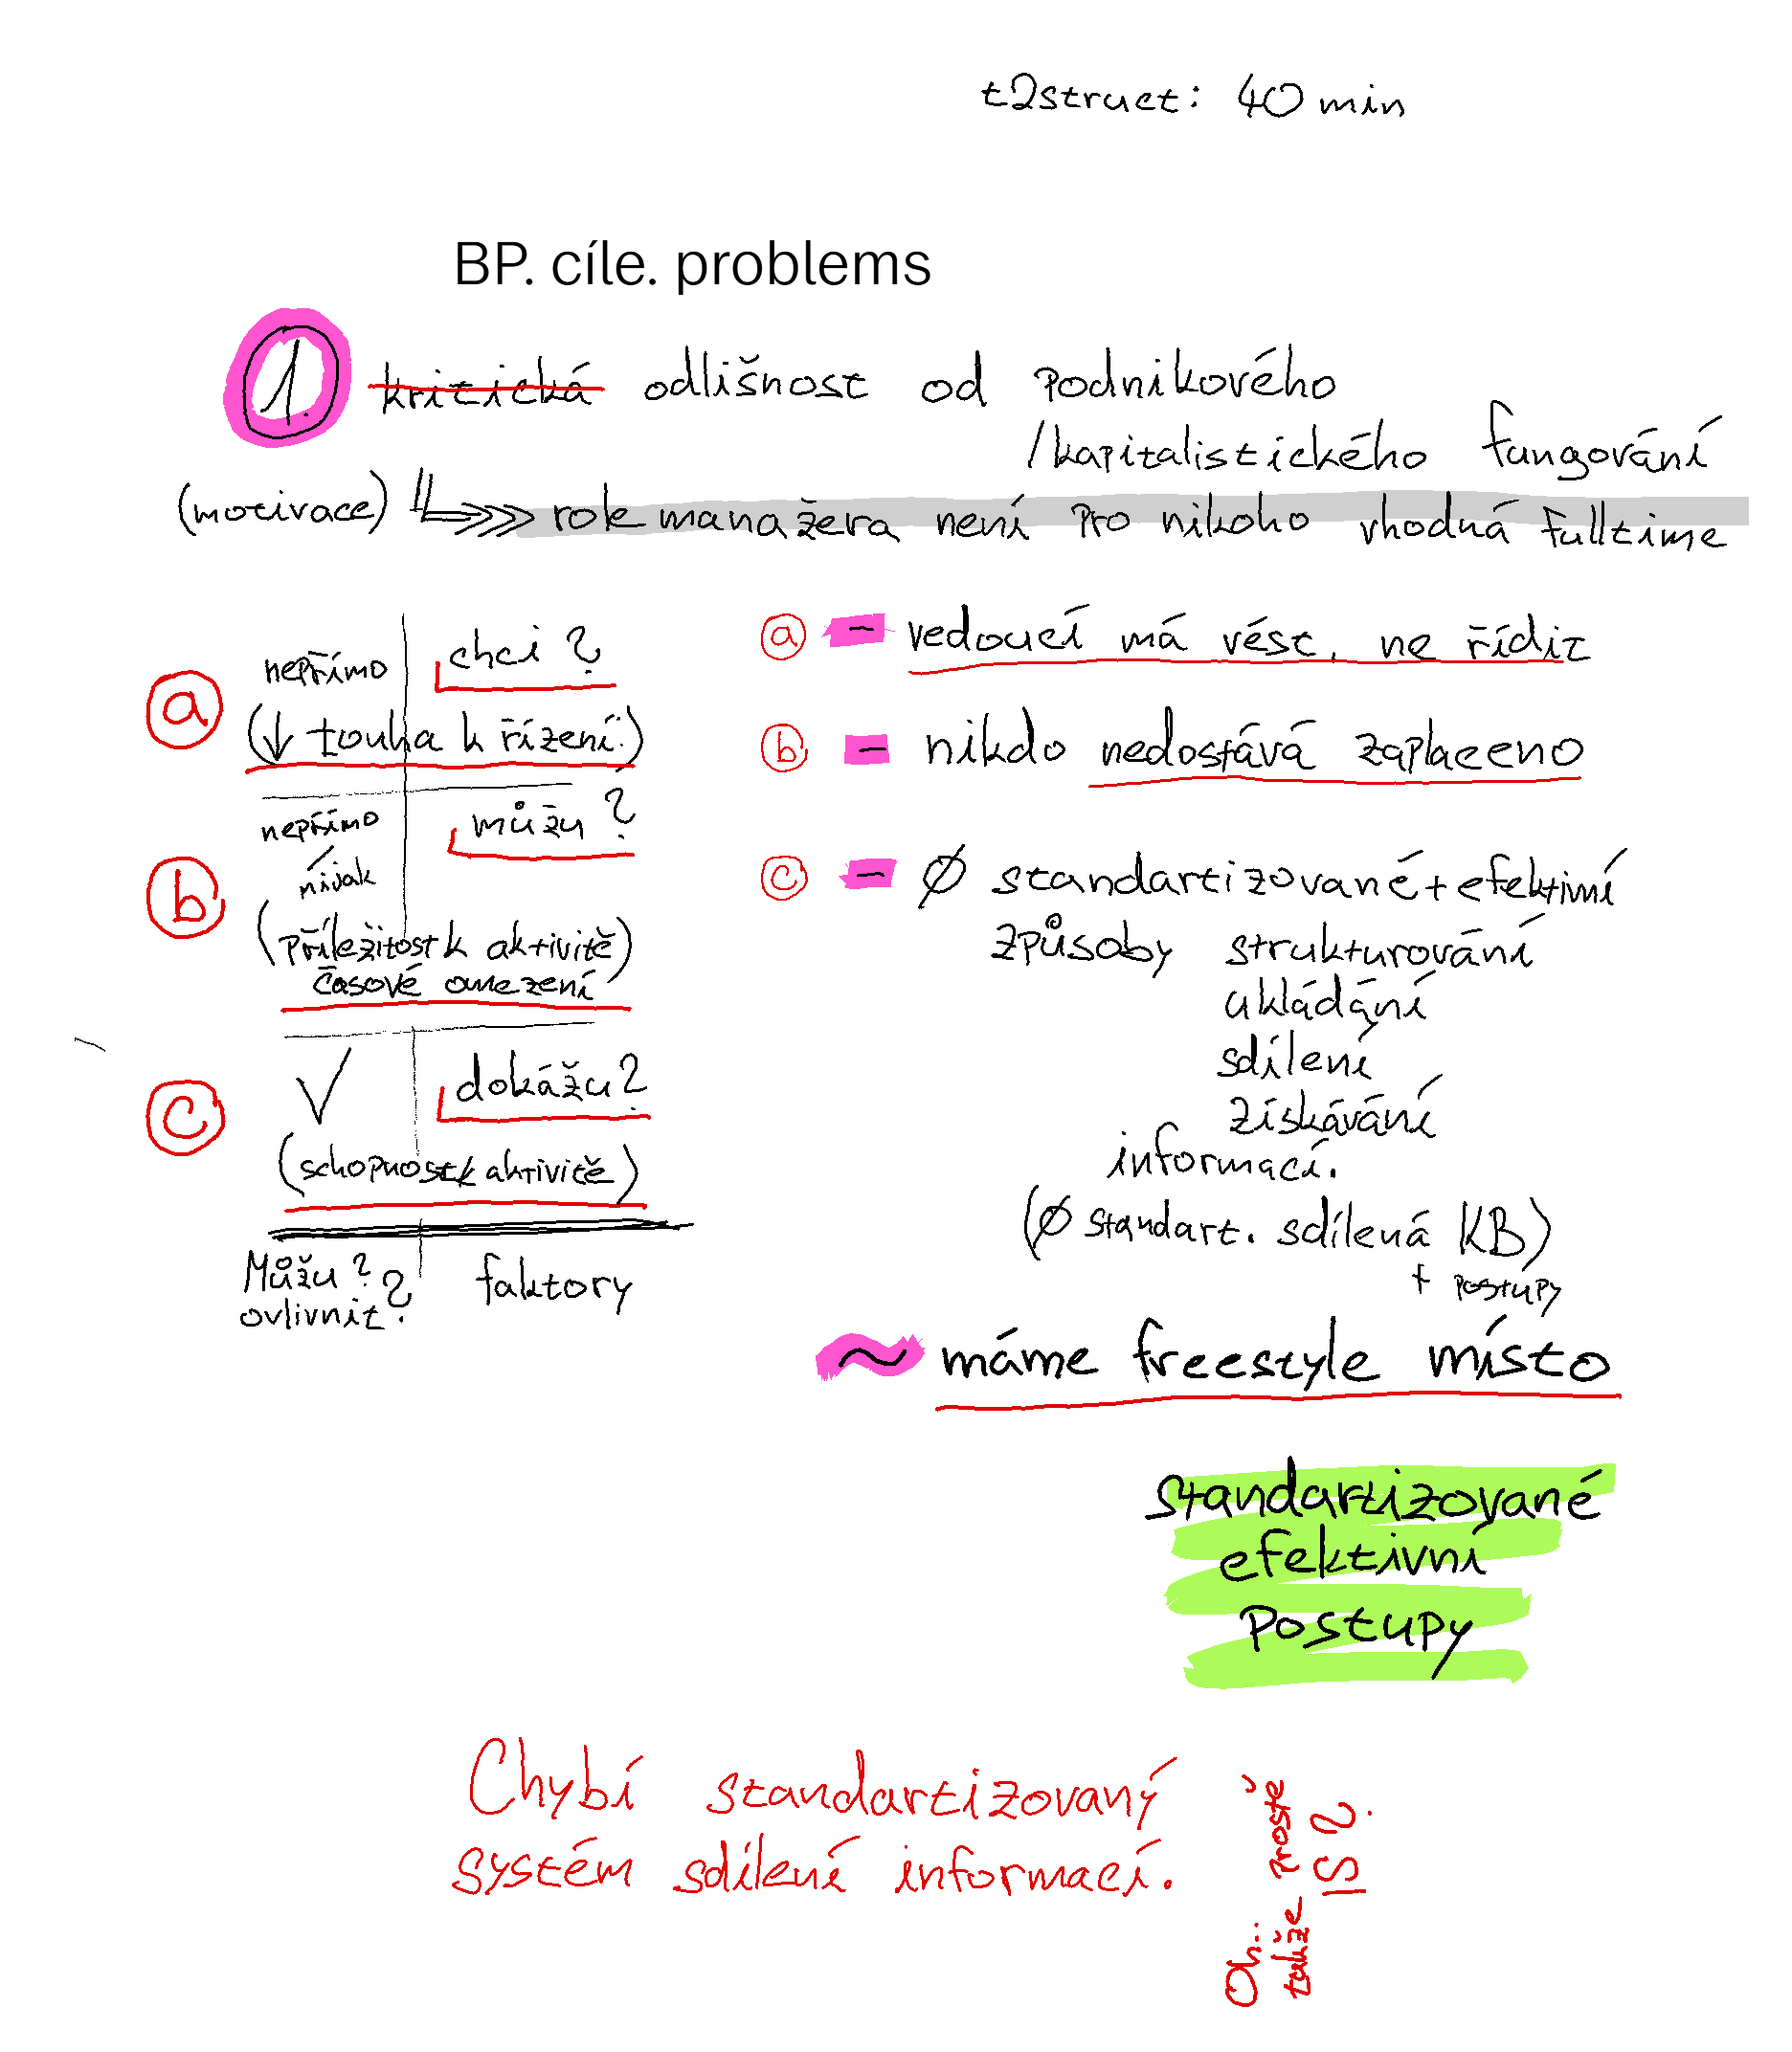 t2struct: 40 min
BP. cíle. problems
1. kritická odlišnost od podnikového
/kapitalistického fungování
(motivace) role manažera není pro nikoho vhodná fulltime
nepřímo chci?
a (↓ touha k řízení)
nepřímo můžu?
/
nijak
b (příležitost k aktivitě)
časové omezení
✓ dokážu?
c (schopnost k aktivitě)
Můžu? faktory
ovlivnit?
a - vedoucí má vést, ne řídit
b - nikdo nedostává zaplaceno
c - Ø standartizované + efektivní
způsoby strukturování
ukládání
sdílení
získávání
informací.
(Ø standart. sdílená KB)
+ postupy
~ máme freestyle místo
standartizované
efektivní
postupy
Chybí standartizovaný
systém sdílení informací.
Oh..
takže prostě
IS?